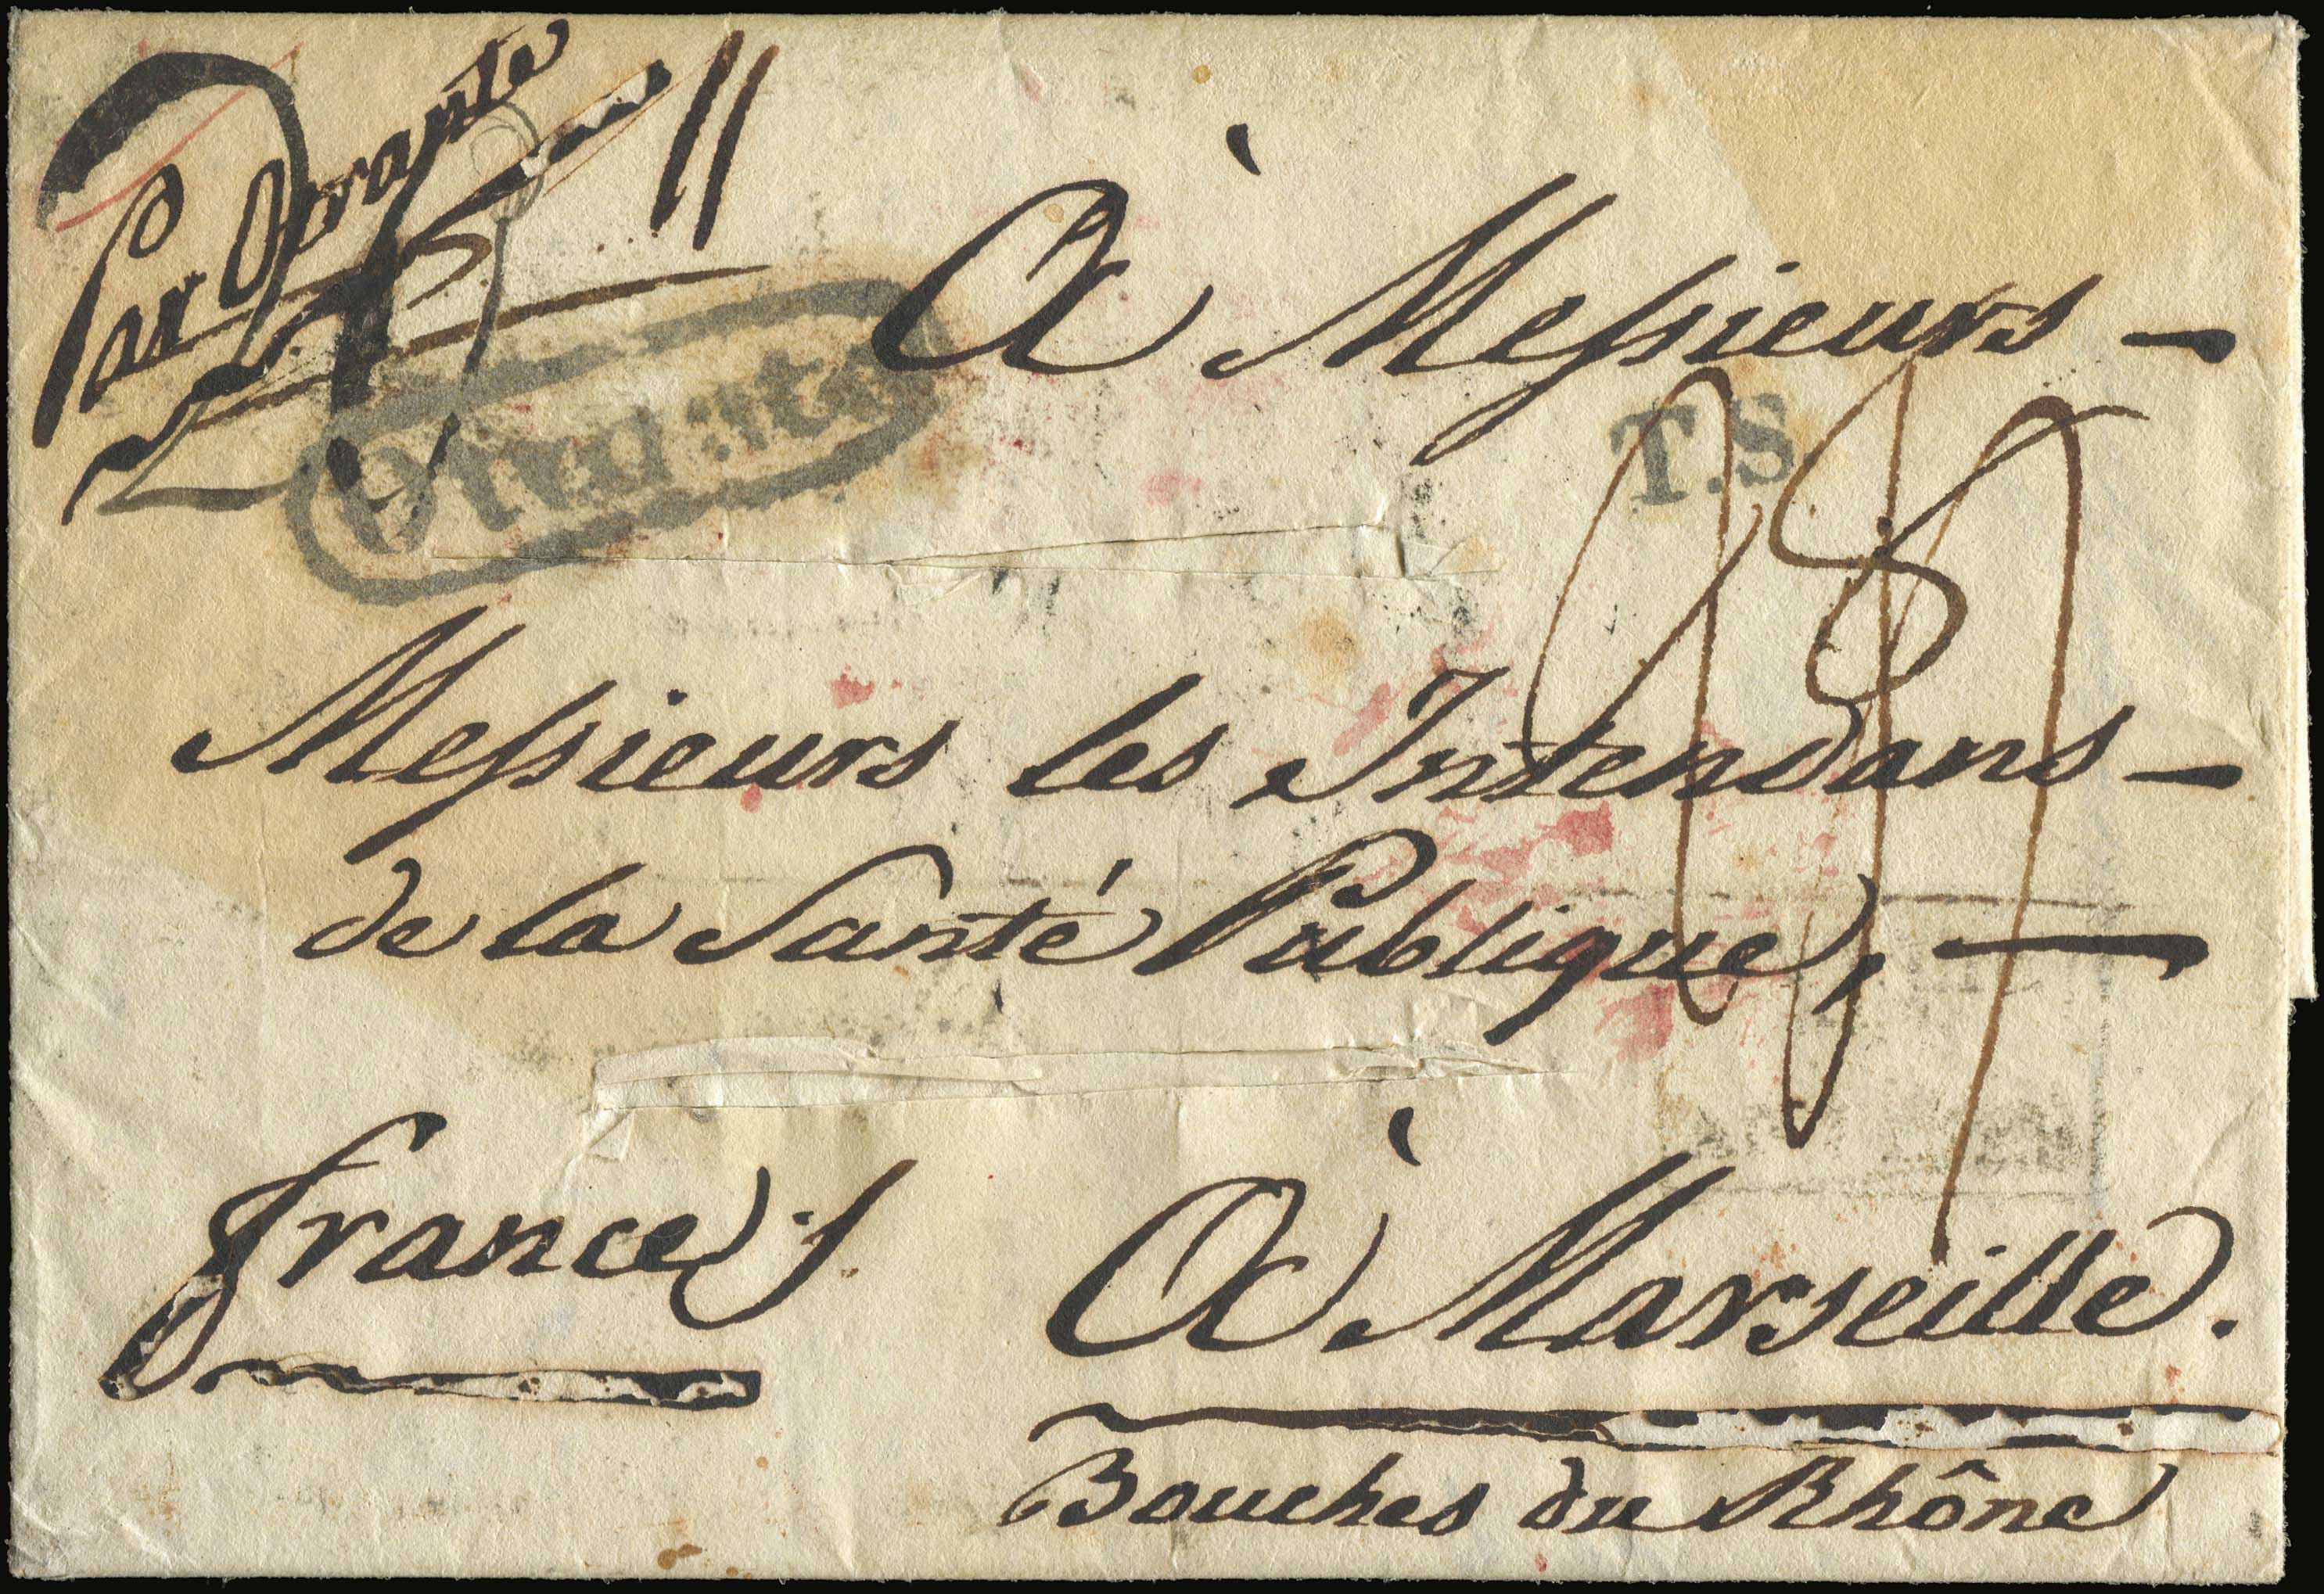 Par Otrante
À Messieurs —
T.S.
Messieurs les Intendans —
de la Santé Publique, —
france
À Marseille.
Bouches du Rhône